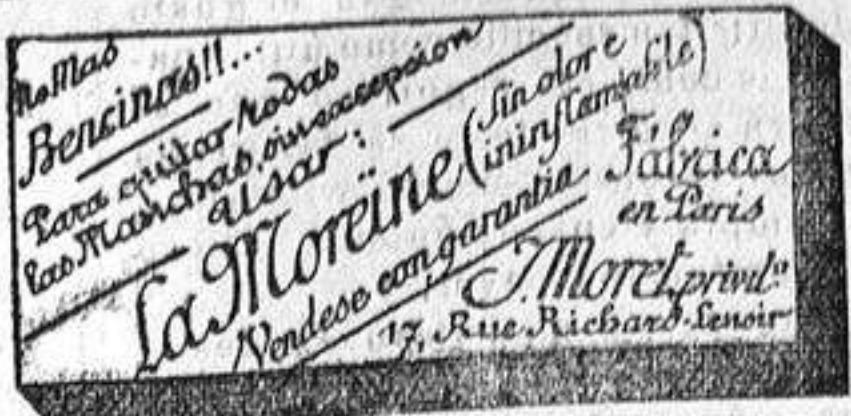 No Mas
Bencinas!!...
Para quitar todas
las Manchas, sin excepcion
Usar:
La Moreïne (sin olor e
ininflamable)
Vendese con garantia
Fábrica
en Paris
J. Moret, privil.º
17, Rue Richard-Lenoir